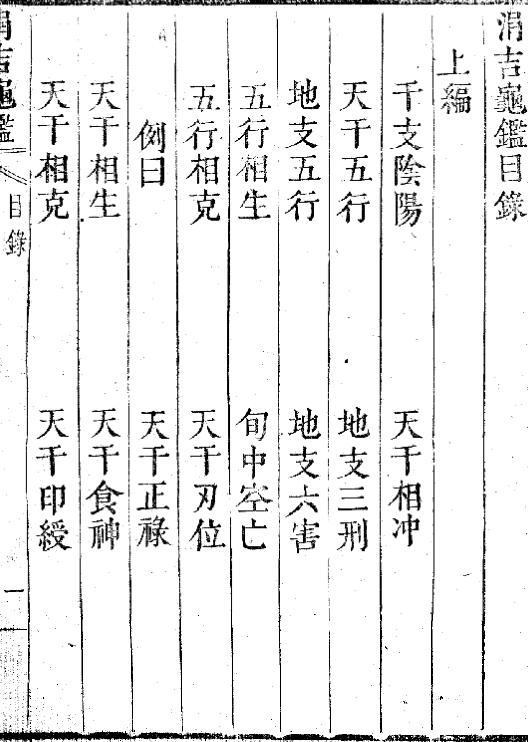 涓吉龜鑑目錄
上編
干支陰陽　天干相冲
天干五行　地支三刑
地支五行　地支六害
五行相生　旬中空亡
五行相克　天干刃位
例曰　天干正祿
天干相生　天干食神
天干相克　天干印綬
涓吉龜鑑　目錄　一